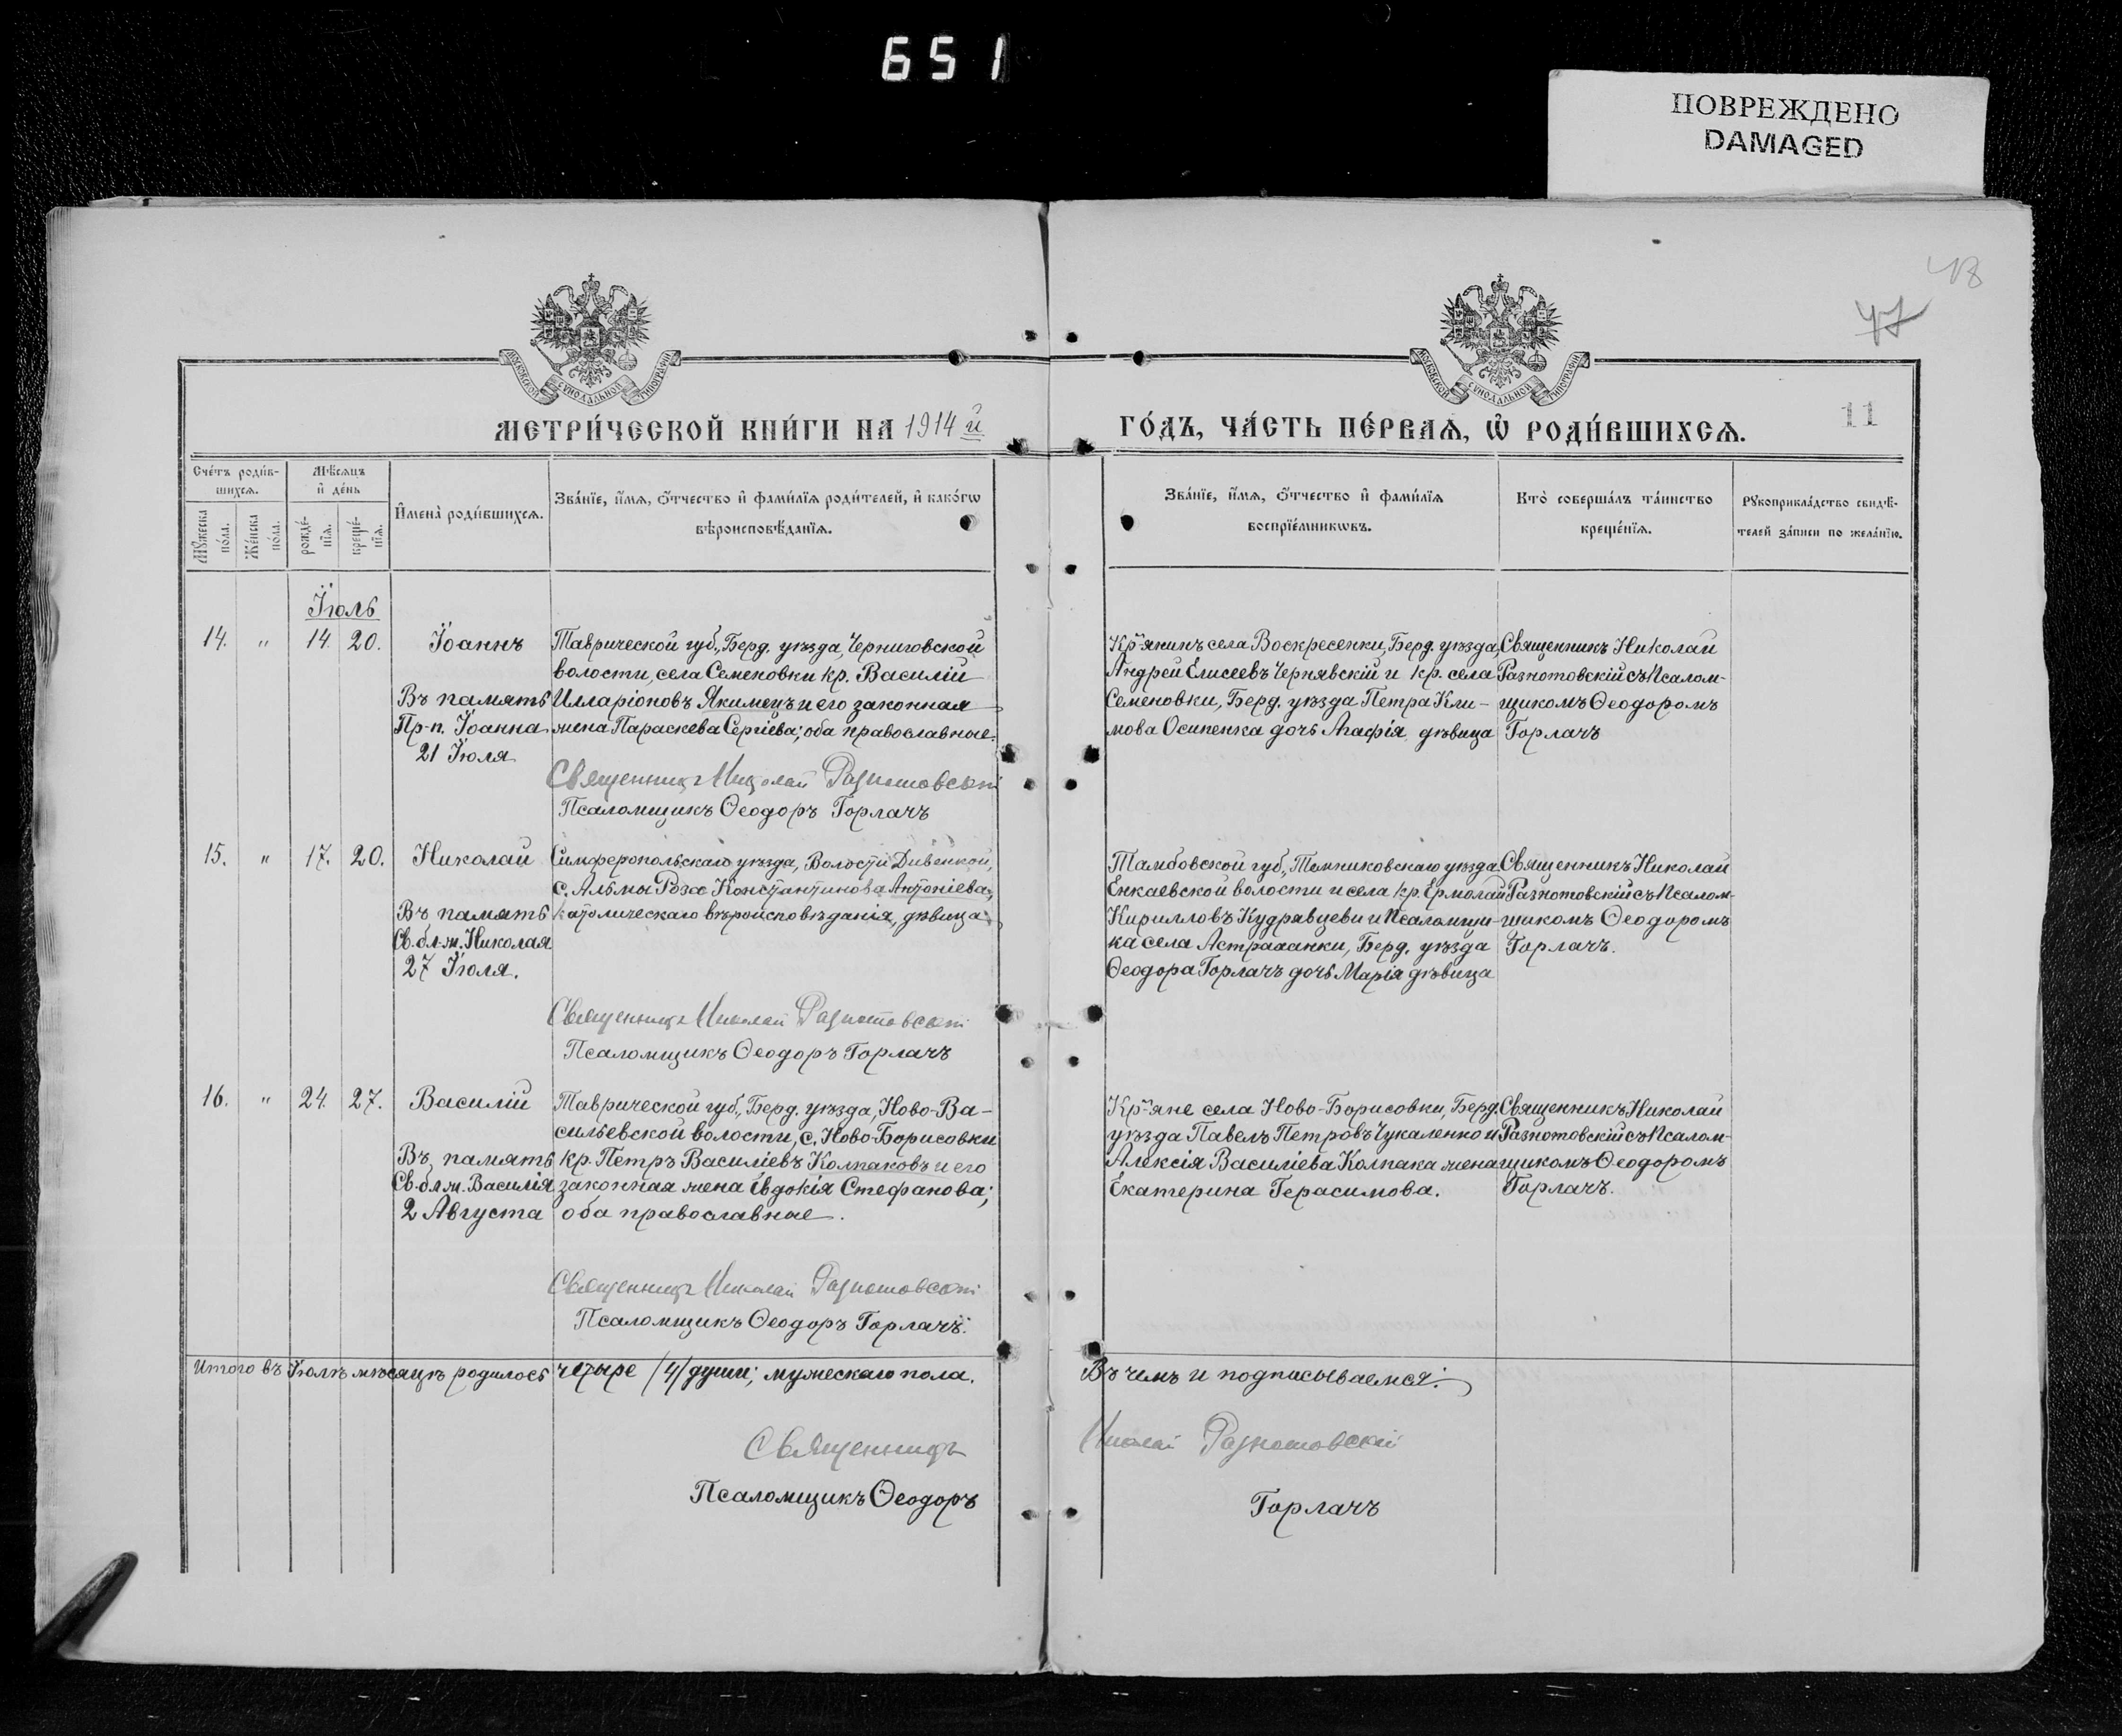 651
ПОВРЕЖДЕНО
DAMAGED
48
47
МОСКОВСКОЙ СѴНОДАЛЬНОЙ ТИПОГРАФІИ
МОСКОВСКОЙ СѴНОДАЛЬНОЙ ТИПОГРАФІИ
МЕТРИ́ЧЕСКОЙ КНИ́ГИ НА 1914 й
ГО́ДЪ, ЧА́СТЬ ПЕ́РВАѦ, Ѡ҆ РОДИ́ВШИХСѦ.
11
Сче́тъ роди́в-
шихсѧ.
Мѣ́сѧцъ
и҆ де́нь
Мꙋ́жеска
по́ла.
Же́нска
по́ла.
рожде́-
нїѧ.
креще́-
нїѧ.
И҆мена̀ роди́вшихсѧ.
Зва́нїе, и҆́мѧ, ѻ҆́тчество и҆ фами́лїѧ роди́телей, и҆ како́гѡ
вѣроисповѣ́данїѧ.
Зва́нїе, и҆́мѧ, ѻ҆́тчество и҆ фами́лїѧ
воспрїе́мникѡвъ.
Кто̀ соверша́лъ та́инство
креще́нїѧ.
Рꙋкоприкла́дство свидѣ́-
телей за́писи по жела́нїю.
Іюль
14. „ 14. 20. Іоаннъ
Въ память
Пр-п. Іоанна
21 Іюля
Таврической губ., Берд. уѣзда, Черниговской
волости, села Семеновки кр. Василій
Илларіоновъ Якимецъ и его законная
жена Параскева Сергіева; оба православные.
Священникъ Николай Разнотовскій
Псаломщикъ Ѳеодоръ Горлачъ
Кр-янинъ села Воскресенки, Берд. уѣзда,
Андрей Елисеевъ Чернявскій и кр. села
Семеновки, Берд. уѣзда Петра Кли-
мова Осипенка дочь Агафія дѣвица
Священникъ Николай
Разнотовскій съ Псалом-
щикомъ Ѳеодоромъ
Горлачъ
15. „ 17. 20. Николай
Въ память
Св. бл-ж. Николая
27 Іюля.
Симферопольскаго уѣзда, Волости Дивенкой,
с. Альмы Роза Константинова Антоніева,
католическаго вѣроисповѣданія, дѣвица
Священникъ Николай Разнотовскій
Псаломщикъ Ѳеодоръ Горлачъ
Тамбовской губ., Темниковскаго уѣзда
Енкаевской волости и села кр. Ермолай
Кирилловъ Кудрявцевъ и Псаломщи-
ка села Астраханки, Берд. уѣзда
Ѳеодора Горлачъ дочь Марія дѣвица
Священникъ Николай
Разнотовскій съ Псалом-
щикомъ Ѳеодоромъ
Горлачъ.
16. „ 24. 27. Василій
Въ память
Св. бл-ж. Василія
2 Августа
Таврической губ., Берд. уѣзда, Ново-Ва-
сильевской волости, с. Ново-Борисовки
кр. Петръ Василіевъ Колпаковъ и его
законная жена Евдокія Стефанова;
оба православные.
Священникъ Николай Разнотовскій
Псаломщикъ Ѳеодоръ Горлачъ.
Кр-яне села Ново-Борисовки, Берд.
уѣзда Павелъ Петровъ Чукаленко и
Алексія Василіева Колпака жена
Екатерина Герасимова.
Священникъ Николай
Разнотовскій съ Псалом-
щикомъ Ѳеодоромъ
Горлачъ.
Итого въ Іюлѣ мѣсяцѣ родилось четыре /4/ души; мужескаго пола.
Въ чемъ и подписываемся:
Священникъ Николай Разнотовскій
Псаломщикъ Ѳеодоръ Горлачъ